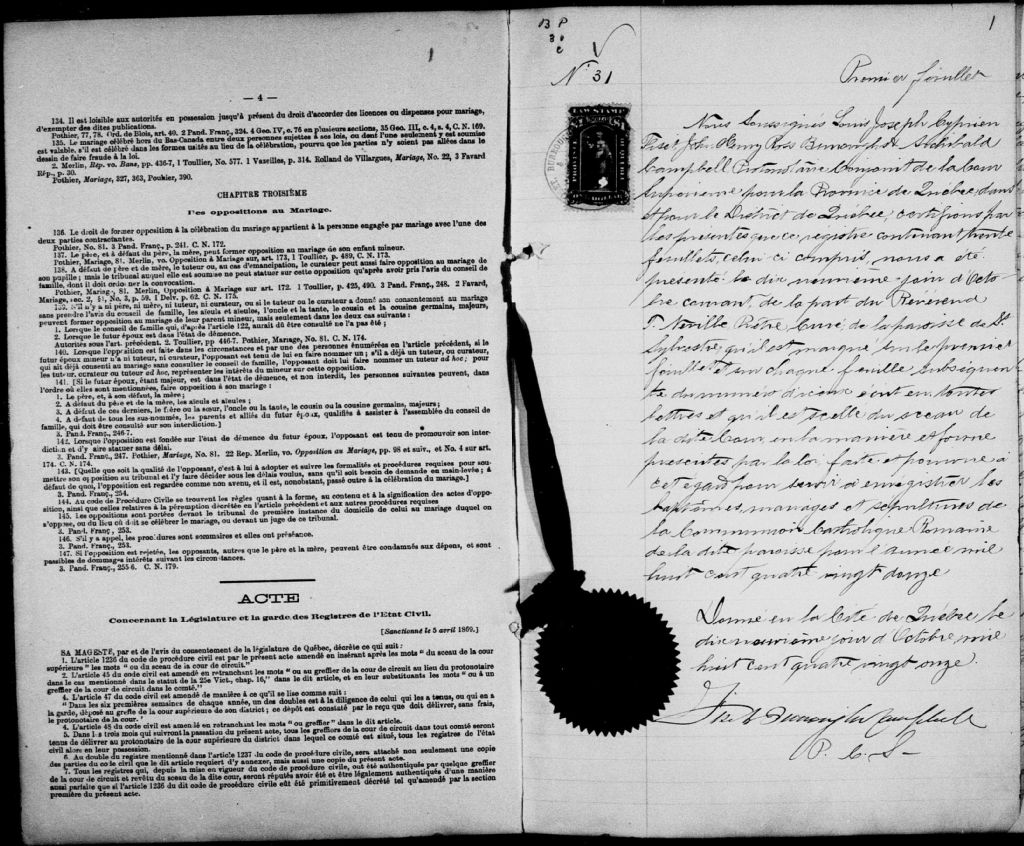 — 4 —
134. Il est loisible aux autorités en possession jusqu'à présent du droit d'accorder des licences ou dispenses pour mariage,
d'exempter des dites publications.
Pothier, 77, 78. Ord. de Blois, art. 40. 2 Pand. Franç., 324. 4 Geo. IV, c. 76 en plusieurs sections, 35 Geo. III, c. 4, s. 4, C. N. 169.
135. Le mariage célébré hors du Bas-Canada entre deux personnes sujettes à ses lois, ou dont l'une seulement y est soumise
est valable, s'il est célébré dans les formes usitées au lieu de la célébration, pourvu que les parties n'y soient pas allées dans le
dessin de faire fraude à la loi.
2. Merlin, Rép. vo. Bans, pp. 436-7, 1 Toullier, No. 577. 1 Vazeilles, p. 314. Rolland de Villargues, Mariage, No. 22, 3 Favard
Rép., p. 30.
Pothier, Mariage, 327, 363, Pothier, 390.
CHAPITRE TROISIÈME
Des oppositions au Mariage.
136. Le droit de former opposition à la célébration du mariage appartient à la personne engagée par mariage avec l'une des
deux parties contractantes.
Pothier, No. 81. 3 Pand. Franç., p. 241. C. N. 172.
137. Le père, et à défaut du père, la mère, peut former opposition au mariage de son enfant mineur.
Pothier, Mariage, 81. Merlin, vo. Opposition à Mariage sur art. 173, 1 Toullier, p. 489, C. N. 173.
138. A défaut de père et de mère, le tuteur ou, au cas d'émancipation, le curateur peut aussi faire opposition au mariage de
son pupille; mais le tribunal auquel elle est soumise ne peut statuer sur cette opposition qu'après avoir pris l'avis du conseil de
famille, dont il doit ordonner la convocation.
Pothier, Mariage, 81. Merlin, Opposition à Mariage sur art. 172. 1 Toullier, p. 425, 490. 3 Pand. Franç., 248. 2 Favard,
Mariage, sec. 2, §1, No. 3, p. 59. 1 Delv. p. 62. C. N. 175.
139. S'il n'y a ni père, ni mère, ni tuteur, ni curateur, ou si le tuteur ou le curateur a donné son consentement au mariage
sans prendre l'avis du conseil de famille, les aïeuls et aïeules, l'oncle et la tante, le cousin et la cousine germains, majeurs,
peuvent former opposition au mariage de leur parent mineur, mais seulement dans les deux cas suivants:
1. Lorsque le conseil de famille qui, d'après l'article 122, aurait dû être consulté ne l'a pas été;
2. Lorsque le futur époux est dans l'état de démence.
Autorités sous l'art. précédent. 2 Toullier, pp 446-7. Pothier, Mariage, No. 81. C. N. 174.
140. Lorsque l'opposition est faite dans les circonstances et par une des personnes énumérées en l'article précédent, si le
futur époux mineur n'a ni tuteur, ni curateur, l'opposant est tenu de lui en faire nommer un; s'il a déjà un tuteur, ou curateur,
qui ait déjà consenti au mariage sans consulter le conseil de famille, l'opposant doit lui faire nommer un tuteur ad hoc; pour
les tuteur, curateur ou tuteur ad hoc, représenter les intérêts du mineur sur cette opposition.
141. [Si le futur époux, étant majeur, est dans l'état de démence, et non interdit, les personnes suivantes peuvent, dans
l'ordre où elles sont mentionnées, faire opposition à son mariage:
1. Le père, et, à son défaut, la mère;
2. A défaut du père et de la mère, les aïeuls et aïeules;
3. A défaut de ces derniers, le frère ou la sœur, l'oncle ou la tante, le cousin ou la cousine germains, majeurs;
4. A défaut de tous les sus-nommés, les parents et alliés du futur époux, qualifiés à assister à l'assemblée du conseil de
famille, qui doit être consulté sur son interdiction.]
3. Pand. Franç., 246-7.
142. Lorsque l'opposition est fondée sur l'état de démence du futur époux, l'opposant est tenu de promouvoir son inter-
diction et d'y faire statuer sans délai.
3. Pand. Franç., 247. Pothier, Mariage, No. 81. 22 Rep. Merlin, vo. Opposition au Mariage, pp. 98 et suiv., et No. 4 sur art.
174. C. N. 174.
143. [Quelle que soit la qualité de l'opposant, c'est à lui à adopter et suivre les formalités et procédures requises pour sou-
mettre son opposition au tribunal et l'y faire décider sous les délais voulus, sans qu'il soit besoin de demande en main-levée; à
défaut de quoi, l'opposition est regardée comme non avenue, et il est, nonobstant, passé outre à la célébration du mariage.]
3. Pand. Franç., 254.
144. Au code de Procédure Civile se trouvent les règles quant à la forme, au contenu et à la signification des actes d'oppo-
sition, ainsi que celles relatives à la péremption décrétée en l'article précédent et aux autres procédures requises
145. Les oppositions sont portées devant le tribunal de première instance du domicile de celui au mariage duquel on
s'oppose, ou du lieu où doit se célébrer le mariage, ou devant un juge de ce tribunal.
3. Pand. Franç., 253.
146. S'il y a appel, les procédures sont sommaires et elles ont préséance.
3. Pand. Franç., 253.
147. Si l'opposition est rejetée, les opposants, autres que le père et la mère, peuvent être condamnés aux dépens, et sont
passibles de dommages-intérêts suivant les circonstances.
3. Pand. Franç., 255-6. C. N. 179.
ACTE
Concernant la Législature et la garde des Registres de l'Etat Civil.
[Sanctionné le 5 avril 1869.]
SA MAGESTE, par et de l'avis du consentement de la législature de Québec, décrète ce qui suit:
1. L'article 1236 du code de procédure civil est par le présent acte amendé en insérant après les mots "du sceau de la cour
supérieure" les mots "ou du sceau de la cour de circuit."
2. L'article 45 du code civil est amendé en retranchant les mots "ou au greffier de la cour de circuit au lieu du protonotaire
dans le cas mentionné dans le statut de la 25e Vict., chap. 16," dans le dit article, et en leur substituants les mots "ou à un
greffier de la cour de circuit dans le comté."
4. L'article 47 du code civil est amendé de manière à ce qu'il se lise comme suit:
"Dans les six premières semaines de chaque année, un des doubles est à la diligence de celui qui les a tenus, ou qui en a
la garde, déposé au greffe de la cour supérieure de son district; ce dépôt est constaté par le reçu que doit délivrer, sans frais,
le protonotaire de la cour.
4. L'article 48 du code civil est amendé en retranchant les mots "ou greffier" dans le dit article.
5. Dans les trois mois qui suivront la passation du présent acte, tous les greffiers de la cour de circuit dans tout comté seront
tenus de délivrer au protonotaire de la cour supérieure du district dans lequel ce comté est situé, tous les registres de l'état
civil alors en leur possession.
6. Au double du registre mentionné dans l'article 1237 du code de procédure civile, sera attaché non seulement une copie
des parties du code civil que le dit article requiert d'y annexer, mais aussi une copie du présent acte.
7. Tous les registres qui, depuis la mise en vigueur du code de procédure civile, ont été authentiqués par quelque greffier
de la cour de circuit et revêtu du sceau de la dite cour, seront réputés avoir été et être légalement authentiqués d'une manière
aussi parfaite que si l'article 1236 du dit code de procédure civile eût été primitivement décrété tel qu'amendé par la section
première du présent acte.
1
B P
3
c
No 31
LAW STAMP
Premier feuillet
Nous Soussignés Louis Joseph Cyprien
Fiset John Henry Ross Burroughs & Archibald
Campbell Protonotaire Conjoint de la Cour
Supérieure pour la Province de Québec, dans
et pour le District de Québec, certifions par
les présentes que ce registre contenant trente
feuillets, celui-ci compris, nous a été
présenté le dix neuvième jour d'Octo
bre courant, de la part du Révérend
T. Neville Prêtre Curé, de la paroisse de St
Sylvestre, qu'il est marqué sur le premier
feuillet et sur chaque feuillet subséquent
du numéro d'icelui écrit en toutes
lettres et qu'il est scellé du sceau de
la dite Cour, en la manière et forme
prescrites par la loi faite et pourvue à
cet égard pour servir à enregistrer les
baptêmes, mariages et sépultures de
la Communion Catholique Romaine
de la dite paroisse pour l'année mil
huit cent quatre vingt douze
Donné en la Cité de Québec le
dix neuvième jour d'Octobre mil
huit cent quatre vingt onze.
Fiset Burroughs Campbell
P. C. S